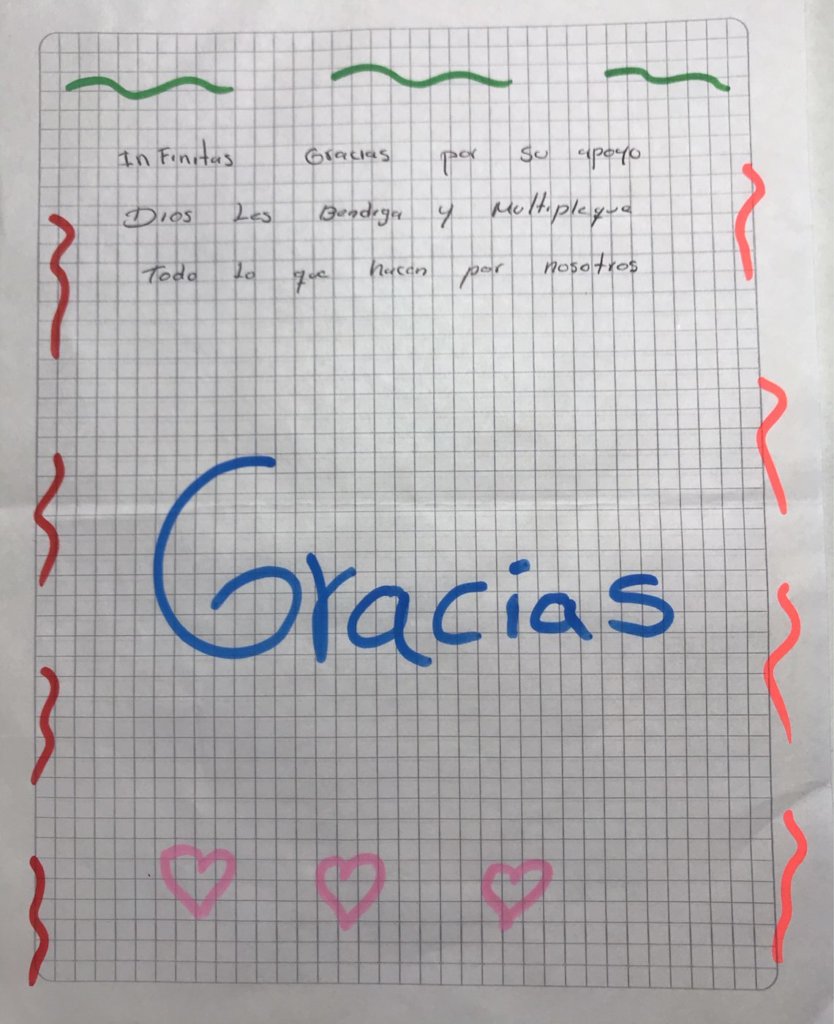 Infinitas Gracias por su apoyo
Dios Les Bendiga y Multiplique
Todo lo que hacen por nosotros
Gracias